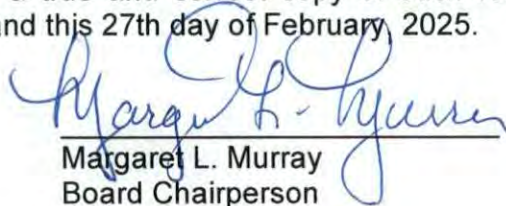 and this 27th day of February, 2025.
Margaret L. Murray
Margaret L. Murray
Board Chairperson